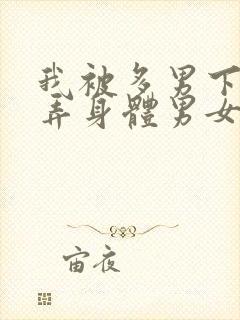 我被多男下
弄身體男女
宙夜